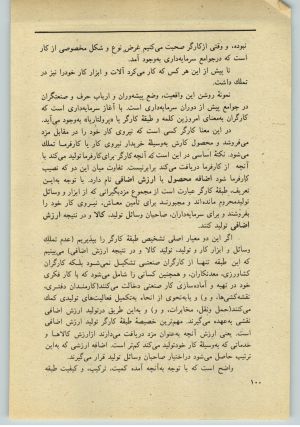 نبوده، و وقتی ازکارگر صحبت می‌کنیم غرض نوع و شکل مخصوصی از کار
است که درجوامع سرمایه‌داری به‌وجود آمد.
تا پیش از این هر کس که کار می‌کرد آلات و ابزار کار خودرا نیز در
تملك داشت.
نمونهٔ روشن این واقعیت، وضع پیشه‌وران و ارباب حرف و صنعتگران
در جوامع پیش از دوران سرمایه‌داری است. با آغاز سرمایه‌داری است که
کارگران به‌معنای امروزین کلمه و طبقهٔ کارگر یا «پرولتاریا» به‌وجود می‌آید.
در این معنا کارگر کسی است که نیروی کار خود را در مقابل مزد
می‌فروشد و محصول کارش به‌وسیلهٔ خریدار نیروی کار یا کارفرما تملك
می‌شود. نکتهٔ اساسی در این است که آنچه کارگر برای‌کارفرما تولید می‌کند با
آنچه از کارفرما دریافت می‌کند برابرنیست. تفاوت میان این دو که نصیب
کارفرما شود اضافه محصول یا ارزش اضافی نام دارد. با توجه به‌این
تعریف، طبقهٔ کارگر عبارت است از مجموع مزدبگیرانی که از ابزار و وسایل
تولیدمحروم مانده‌اند و مجبورند برای تأمین معاش، نیروی کار خود را
بفروشند و برای سرمایه‌داران، صاحبان وسایل تولید، کالا و در نتیجه ارزش
اضافی تولید کنند.
اگر این دو معیار اصلی تشخیص طبقهٔ کارگر را بپذیریم (عدم تملك
وسایل و ابزار کار و تولید، تولید کالا و در نتیجه ارزش اضافی) می‌بینیم
که این طبقه تنها از کارگران صنعتی تشکیل نمی‌شود بلکه کارگران
کشاورزی، معدنکاران، و همچنین کسانی را شامل می‌شود که با کار فکری
خود در تهیه و آماده‌سازی کار صنعتی دخالت می‌کنند(کارمندان دفتری،
نقشه‌کش‌ها، و و) و یابه‌نحوی از انحاء به‌تکمیل فعالیت‌های تولیدی کمك
می‌کنند(حمل ونقل، مخابرات، و و) و به‌این طریق درتولید ارزش اضافی
نقشی به‌عهده می‌گیرند. مهم‌ترین خصیصهٔ طبقهٔ کارگر تولید ارزش اضافی
است. یعنی ارزش آنچه به‌عنوان مزد دریافت می‌دارند ازارزش کالاها و
خدماتی که به‌وسیلهٔ کار خودتولید می‌کند کم‌تر است. اضافه ارزشی که به‌این
ترتیب حاصل می‌شود دراختیار صاحبان وسائل تولید قرار می‌گیرند.
واضح است که با توجه به‌آنچه آمده کمیت، ترکیب، و کیفیت طبقه
۱۰۰